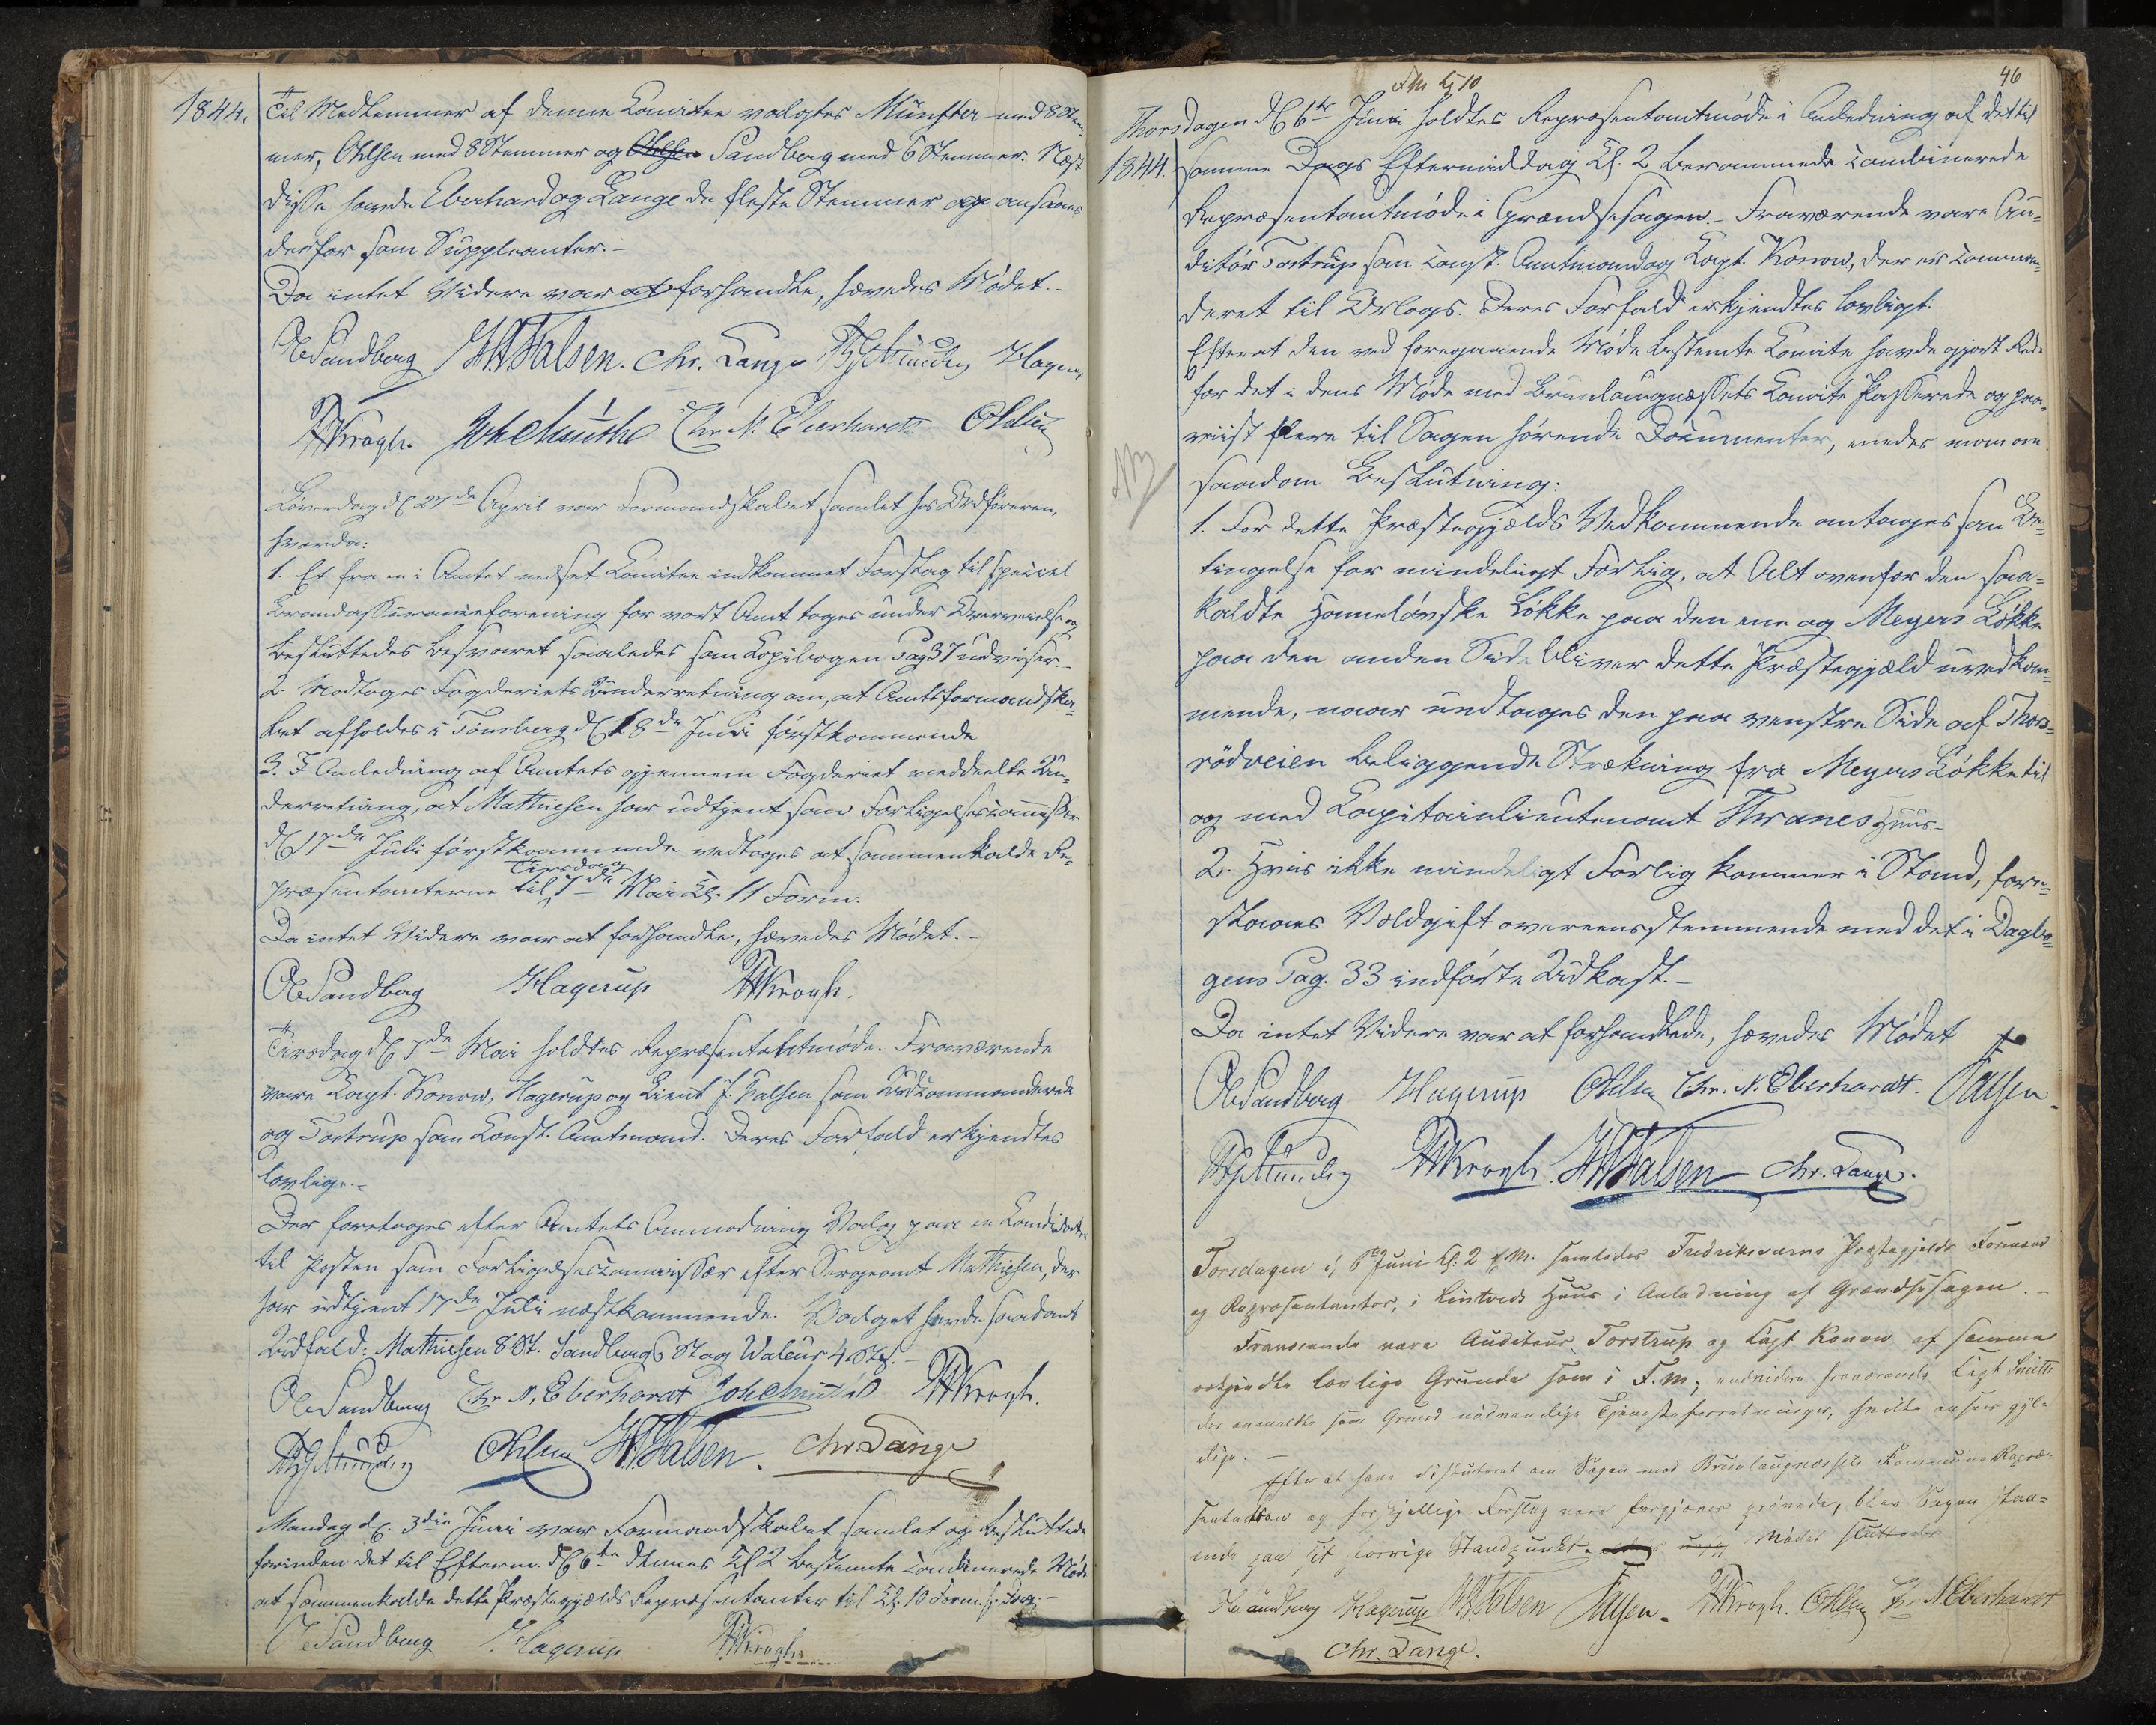 1844.
Til Medlemmer af denne Komitee valgtes Münster med 8 Stem-
mer, Ohlsen med 8 Stemmer og Ohlsen Sandberg med 6 Stemmer. Næst
disse havde Eberhard og Lange de fleste Stemmer og ansaaes
derfor som Suppleanter. –
Da intet Videre var at forhandle, hævedes Mødet. –
Ole Sandberg Falsen. Chr. Lange Hagerup
Krogh. Chr. N. Eberhardt Ohlsen
Løverdag d. 27de April var Formandskabet samlet hos Ordføreren,
hvorda:
1. Et fra en i Amtet nedsat Komitee indkommet Forslag til speciel
Brandassuranceforening for vort Amt toges under Overveielse og
besluttedes besvaret saaledes som Kopibogen Pag 37 udviser. –
2. Modtoges Fogderiets Underretning om, at Amtsformandska-
bet afholdes i Tønsberg d. 18de Juni førstkommende
3. I Anledning af Amtets gjennem Fogderiet meddeelte Un-
derretning, at Mathiesen har udtjent som Forligelsescommissær
d. 17de Juli førstkommende vedtoges at sammenkalde Re-
præsentanterne til Tirsdag 7de Mai Kl. 11 Form.
Da intet Videre var at forhandle, hævedes Mødet. –
Ole Sandberg Hagerup Krogh.
Tirsdag d. 7de Mai holdtes Repræsentantmøde. Fraværende
vare Capt. Konow, Hagerup og Lieut J. Falsen som Udkommanderede
og Torstrup som Const. Amtmand. Deres Forfald erkjendtes
lovlige. –
Der foretoges efter Amtets Anmodning Valg paa en Kandidat
til Posten som Forligelsescommissær efter Sergeant Mathiesen, der
har udtjent 17de Juli næstkommende. Valget havde saadant
Udfald: Mathiesen 8 St. Sandberg 6 St og Waleur 4 St. –
Ole Sandberg Chr. N. Eberhardt Krogh.
Ohlsen Falsen. Chr. Lange
Mandag d. 3die Juni var Formandskabet samlet og besluttede
forinden det til Efterm. d. 6te dennes Kl 2 bestemte combinerede Møde
at sammenkalde dette Præstegjælds Repræsentanter til Kl. 10 Form. s. Dag. –
Ole Sandberg Hagerup Krogh.
46
FM Kl 10
Thorsdagen d. 6te Juni holdtes Repræsentantmøde i Anledning af det til
1844. samme Dags Eftermiddag Kl. 2 berammede combinerede
Repræsentantmøde i Grændsesagen. – Fraværende vare Au-
ditør Torstrup som const. Amtmand og Capt. Konow, der er comman-
deret til Orlogs. Deres Forfald erkjendtes lovligt.
Efterat den ved foregaaende Møde bestemte Komite havde gjort Rede
for det i dens Møde med Brunlaugnæssets Komite Passerede og paa-
viist flere til Sagen hørende Documenter, enedes man om
saadan Beslutning:
NB
1. For dette Præstegjælds Vedkommende antages som Be-
tingelse for mindeligt Forlig, at Alt ovenfor den saa-
kaldte Hameløvske Løkke paa den ene og Meyers Løkke
paa den anden Side bliver dette Præstegjæld uvedkom-
mende, naar undtages den paa venstre Side af Thors-
rødveien beliggende Strækning fra Meyers Løkke til
og med Capitainlieutenant Thranes Huus –
2. Hvis ikke mindeligt Forlig kommer i Stand, fore-
slaaes Voldgift overeensstemmende med det i Dagbo-
gens Pag. 33 indførte Udkast. –
Da intet Videre var at forhandlede, hævedes Mødet
Ole Sandberg Hagerup Ohlsen Chr. N. Eberhardt.
Krogh. Falsen Chr. Lange.
Torsdagen d. 6te Juni Kl. 2 E.M. samledes Fredriksværns Præstegjelds Formænd
og Repræsentanter, i Huus i Anledning af Grændsesagen. –
Fraværende vare Auditeur Torstrup og Capt Konow af samme
erkjendte lovlige Grunde som i F.M; endvidere fraværende Capt
der anmeldte som Grund nødvendige Tjenesteforretninger, hvilke ansees gyl-
dige. –
Efter at have disputeret om Sagen med Brunlaugnæssets Kommune Repræ-
sentanter og forskjellige Forslag vare forgjæves prøvede, blev Sagen staa-
ende paa sit forrige Standpunkt. Mødet sluttedes
Sandberg Hagerup Falsen Krogh. Ohlsen Chr. N Eberhardt
Chr. Lange.